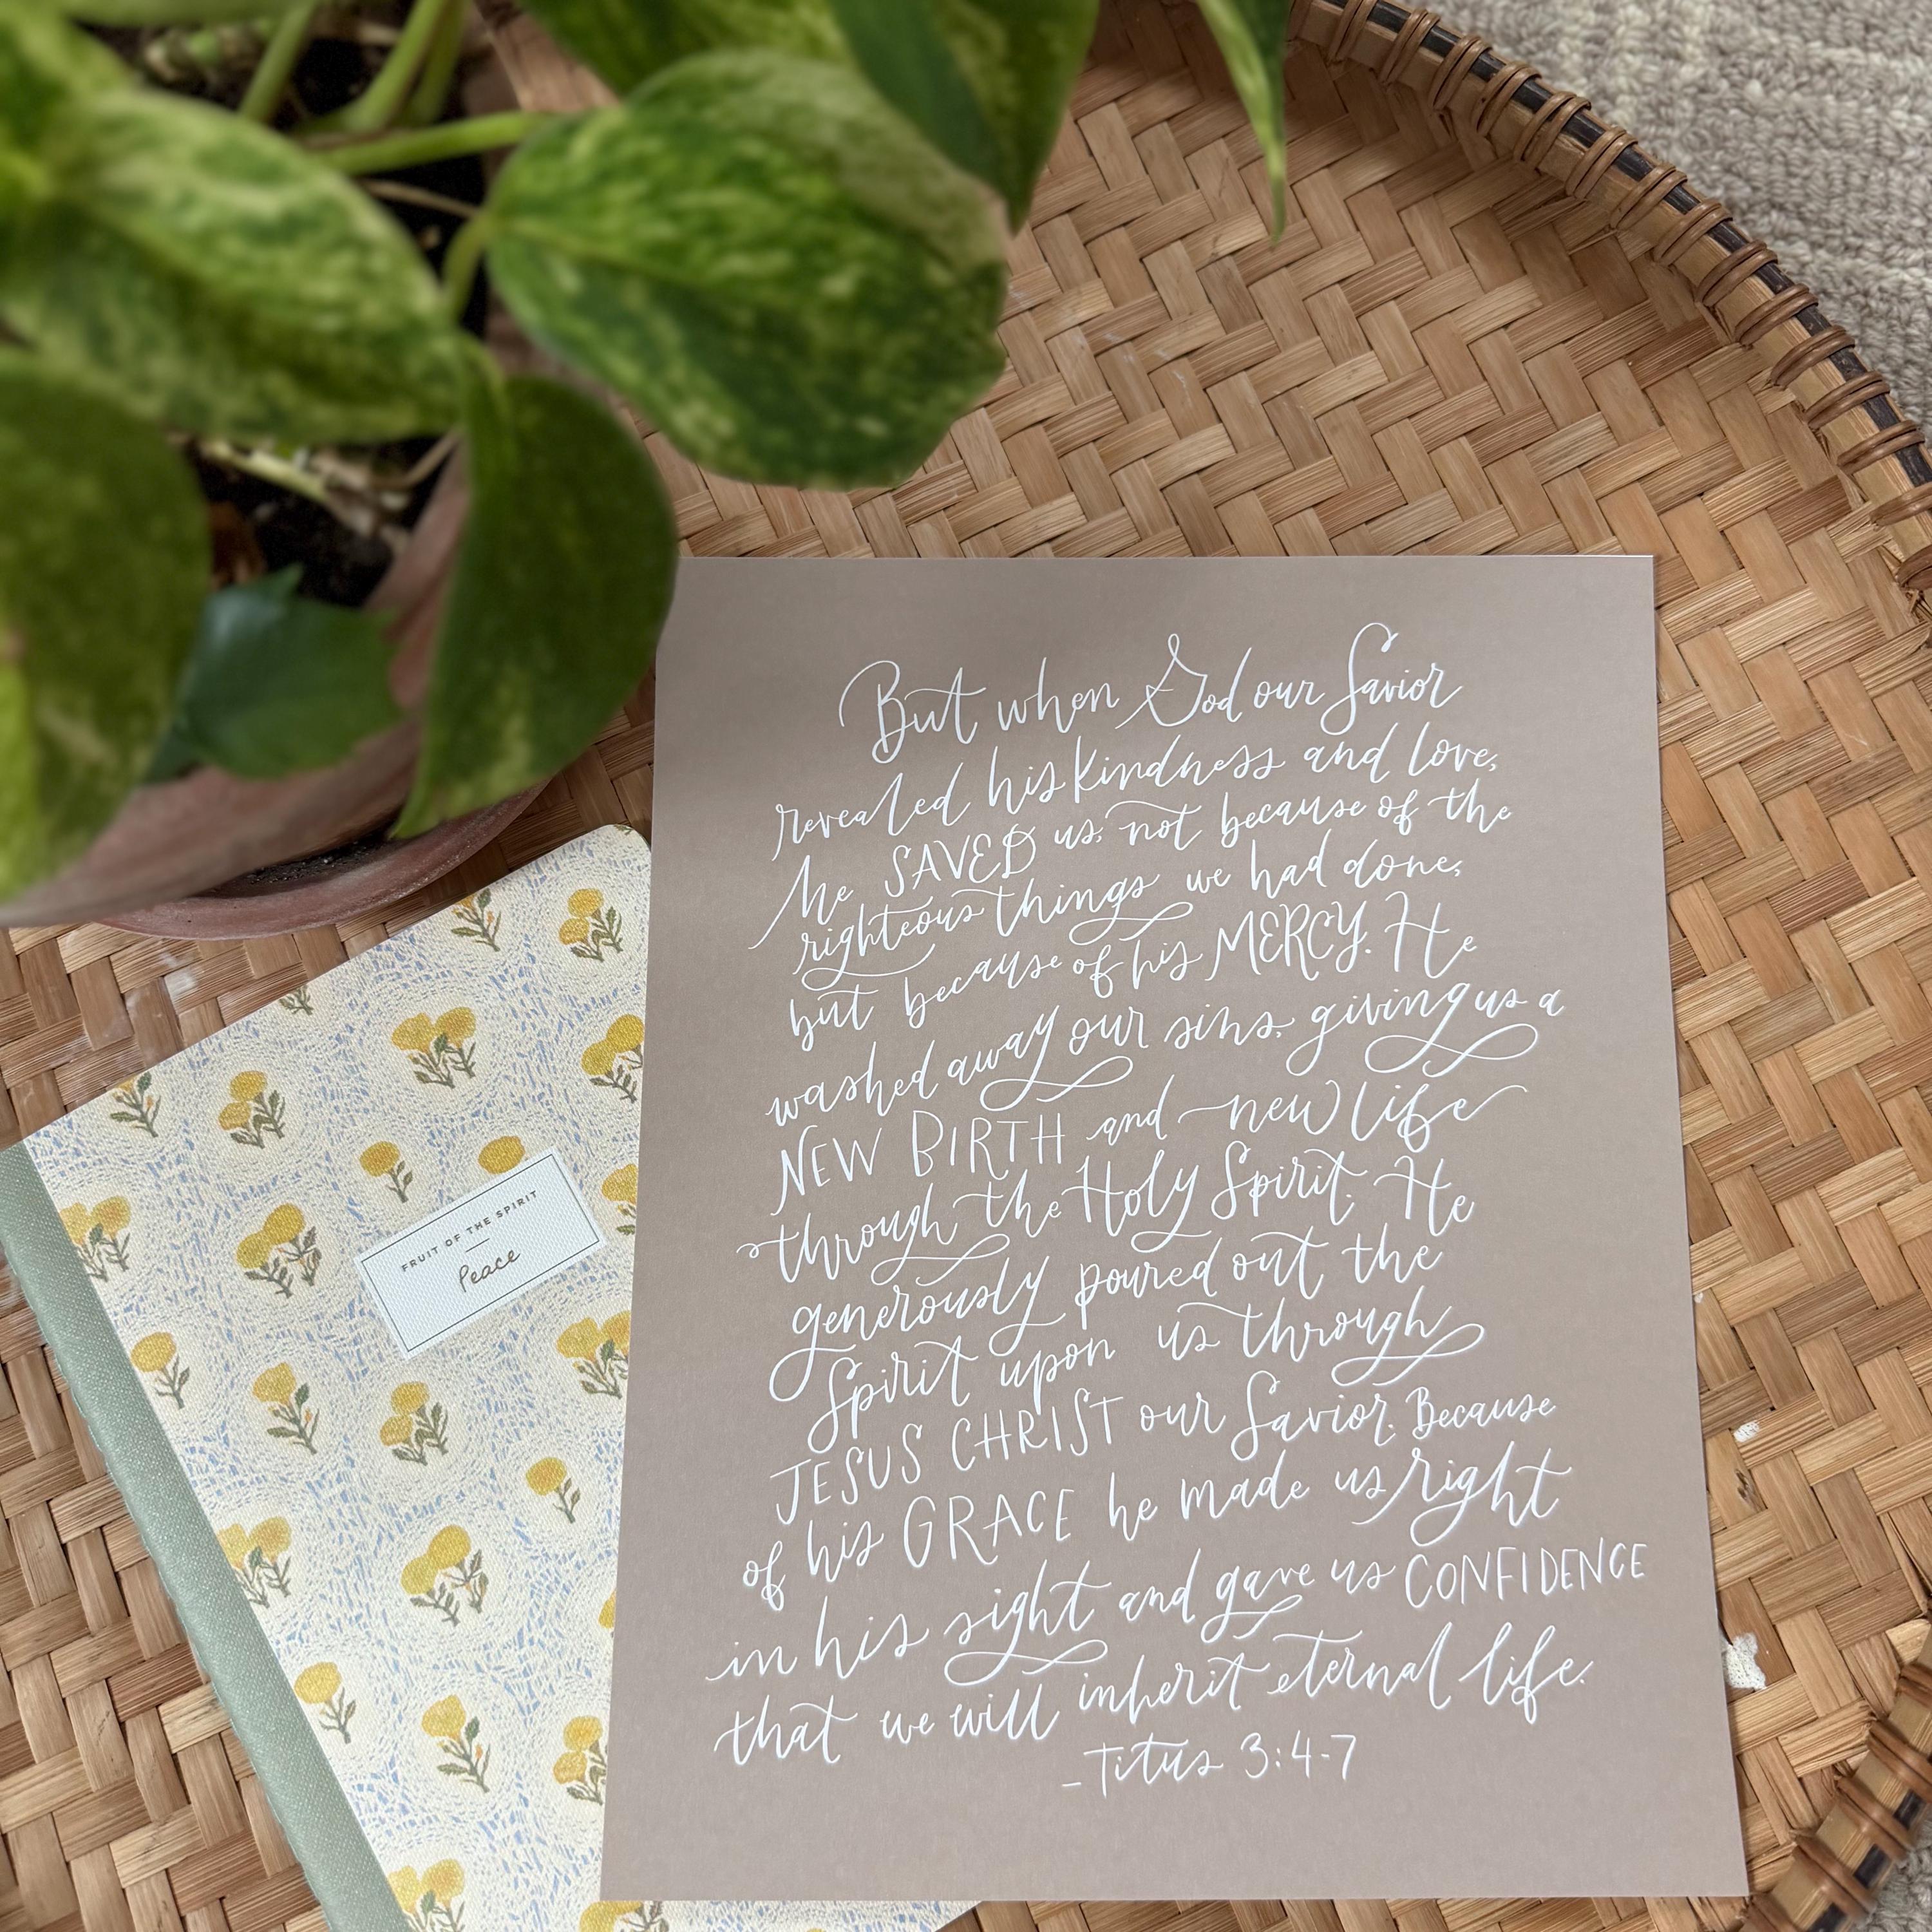 But when God our Savior
revealed his kindness and love,
He SAVED us, not because of the
righteous things we had done,
but because of his MERCY. He
washed away our sins, giving us a
NEW BIRTH and new life
through the Holy Spirit. He
generously poured out the
Spirit upon us through
JESUS CHRIST our Savior. Because
of his GRACE he made us right
in his sight and gave us CONFIDENCE
that we will inherit eternal life.
-Titus 3:4-7
FRUIT OF THE SPIRIT
Peace